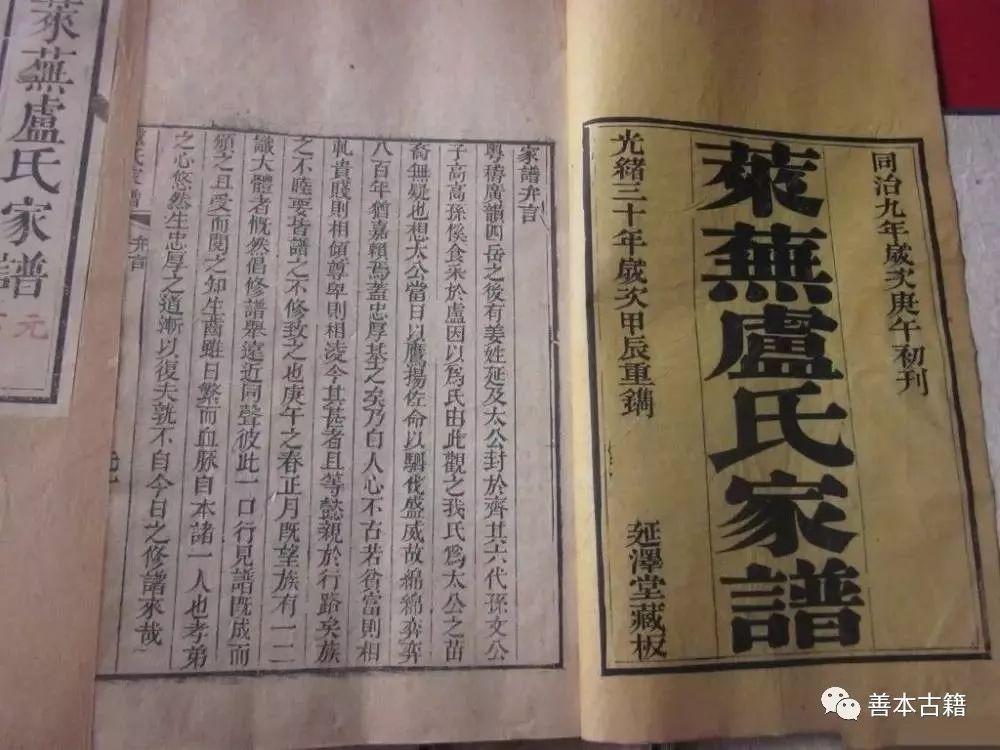 同治九年歲次庚午初刊
萊蕪盧氏家譜
光緒三十年歲次甲辰重鐫
延澤堂藏板
家譜弁言
粤稽廣韻四岳之後有姜姓延及太公封於齊其六代孫文公
子高高孫傒食采於盧因以為氏由此觀之我氏為太公之苗
裔無疑也想太公當日以鷹揚佐命以駟伐盛威故綿綿弈弈
八百年猶嘉賴焉蓋忠厚基之矣乃自人心不古若貧富則相
軋貴賤則相傾尊卑則相凌今其甚者且等懿親於行路矣族
之不睦要皆譜之不修致之也庚午之春正月既望族有一二
識大體者慨然倡修譜舉遠近同聲彼此一口行見譜既成而
頒之且受而閱之知生齒雖日繁而血脈自本諸一人也孝弟
之心悠然生忠厚之道漸以復夫孰不自今日之修譜來哉
氏家譜
弁言
萊蕪盧氏家譜
元
善本古籍